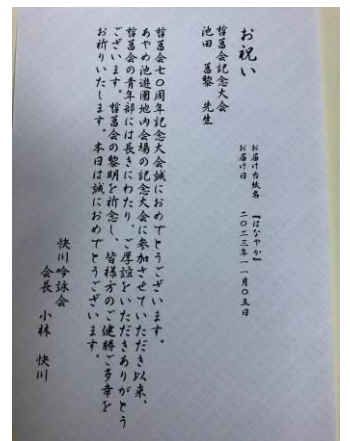 お祝い
お届け台紙名　『はなやか』
お届け日　二〇二三年一一月〇五日
哲菖会記念大会
池田　菖黎　先生
哲菖会七〇周年記念大会誠におめでとうございます。
あやめ池遊園地内会場の記念大会に参加させていただき以来、
哲菖会の青年部には長きにわたり、ご厚誼をいただきありがとう
ございます。哲菖会の黎明を祈念し、皆様方のご健勝ご多幸を
お祈りいたします。本日は誠におめでとうございます。
快川吟詠会
会長　小林　快川